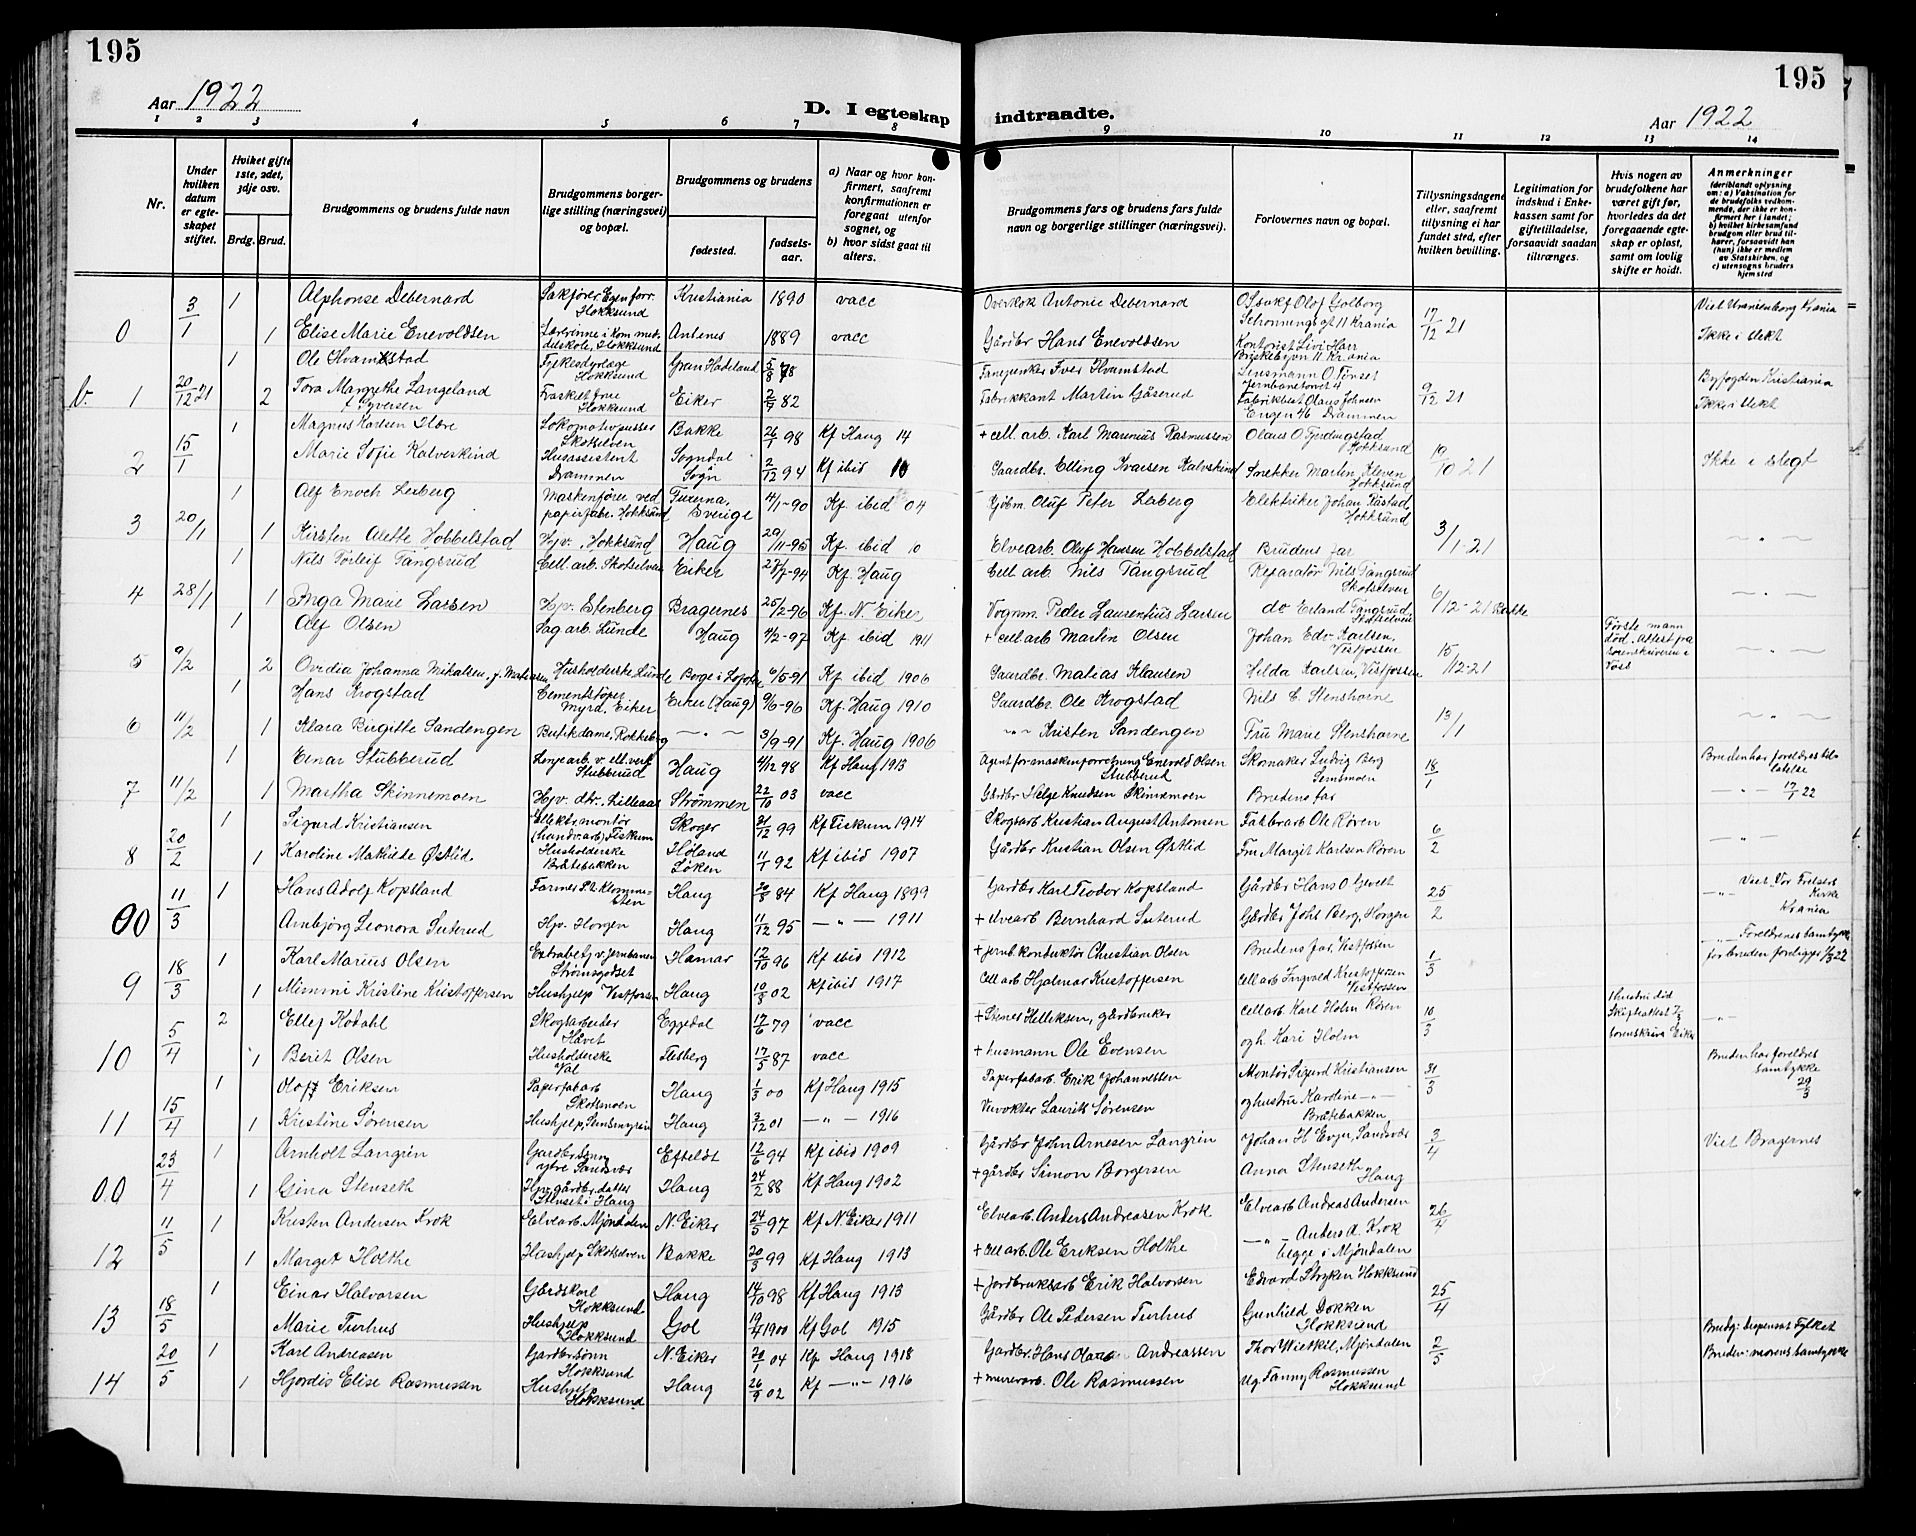 195
195
Aar 1922
D. I egteskap indtraadte.
Aar 1922
1 2 3 4 5 6 7 8 9 10 11 12 13 14
Nr.
Under hvilken datum er egteskapet stiftet.
Hvilket gifte 1ste, 2det, 3dje osv.
Brdg. Brud.
Brudgommens og brudens fulde navn
Brudgommens borgerlige stilling (næringsvei) og bopæl.
Brudgommens og brudens
fødested.
fødselsaar.
a) Naar og hvor konfirmert, saafremt konfirmationen er foregaat utenfor sognet, og
b) hvor sidst gaat til alters.
Brudgommens fars og brudens fars fulde navn og borgerlige stillinger (næringsvei).
Forlovernes navn og bopæl.
Tillysningsdagene eller, saafremt tillysning ei har fundet sted, efter hvilken bevilling.
Legitimation for indskud i Enkekassen samt for giftetilladelse, forsaavidt saadan tiltrænges.
Hvis nogen av brudefolkene har været gift før, hvorledes da det foregaaende egteskap er opløst, samt om lovlig skifte er hoidt.
Anmerkninger
(deriblandt oplysning om: a) Vaksination for de brudefolks vedkommende, der ikke er konfirmert her i landet; b) hvilket kirkesamfund brudgom eller brud tilhører, forsaavidt han (hun) ikke er medlem av Statskirken, og c) utensogns bruders hjemsted
3/1 1 Alphonse Debernard Sakfører Egen forr. Hokksund Kristiania 1890 vacc Overkok Antonie Debernard O.r.sakf Olof Golborg Schønningsgt 11 Krania 17/12 21 Viet Uranienborg Krania
0 1 Elise Marie Enevoldsen Lærerinne i kom. middelskole, Hokksund 1889 vacc Gårdbr Hans Enevoldsen Kontorist Livi Harr Briskebyvn 11 Kr.ania Ikke i slekt
1 Ole Hvamstad Fylkesdyrlæge Hokksund Gran Hadeland 5/8 78 Iver Hvamstad Lensmann O Tinset Jernbanetorvet 4 Byfogden Kristiania
b. 1 20/12 21 2 Tora Margrethe Langeland f. Syversen Fraskilt frue Hokksund Eiker 2/7 82 Fabrikkant Martin Gåserud Fabrikbest Olaus Johnsen Engen 46 Drammen 9/12 21 Ikke i slekt
1 Magnus Karlsen Flære Lokomotivpusser Skotselven Bakke 26/1 98 Kf Haug 14 + cell. arb. Karl Marenius Rasmussen Olaus O. Fjerdingstad Hokksund
2 15/1 Marie Sofie Kalveskind Husassistent Drammen Sogndal Sogn 2/12 94 Kf ibid 10 Gaardbr. Elling Ivarsen Kalvskind Snekker Martin Kleven Hokksund 19/10 21 Ikke i slegt
1 Alf Enoch Leiberg Maskenfører ved papirfabr. Hokksund Sverige 4/1-90 Kf. ibid 04 Gjbm. Oluf Peter Leiberg Elektriker Johan Råstad, Hokksund
3 20/1 1 Kirsten Alette Hobbelstad Hjv. Hokksund Haug 29/11-95 Kf. ibid 10 Elvearb. Oluf Hansen Hobbelstad Brudens far 3/1-21 — " —
1 Nils Torleif Tangsrud Cell. arb. Skotselven Eiker 27/7-94 Kf. Haug Cell. arb. Nils Tangsrud Reparatør Nils Tangsrud Skotselven
4 28/1 1 Inga Marie Larsen Hjv. Stenberg Bragernes 25/2-96 Kf. N. Eiker Vognm. Peder Laurentius Larsen do Erland Tangsrud Skotselven 6/12-21 Bakke — " —
1 Alf Olsen Sag arb. Lunde Haug 4/2-97 Kf. ibid 1911 + cell. arb Martin Olsen Johan Edv. Karlsen, Vestfossen Første mann død. Attest fra sorenskriveren i Voss
5 9/2 2 Ovidia Johanna Mikalsen, f. Matiassen Husholderske Lunde Borge i Lofoten 6/5-91 Kf. ibid 1906 Gaardbr. Matias Klausen Hilda Karlsen, Vestfossen 15/12-21 — " —
1 Hans Krogstad Cementstøper Myrd. Eiker Eiker (Haug) 9/6-96 Kf. Haug 1910 Gaardbr. Ole Krogstad Nils C. Stenshorne
6 11/2 1 Klara Birgitte Sandengen Butikdame, Rokkeberg — " — 3/9-91 Kf. Haug 1906 — " — Kristen Sandengen Fru Marie Stenshorne 13/1 — " —
1 Einar Stubberud Lenje arb. v. ell. verk Stubberud Haug 4/12 98 Kf Haug 1913 Agent for maskenforretning Enevold Olsen Stubberud Skomaker Ludvig Berg Semsmoen 18/1 Bruden har foreldres tillatelse
7 11/2 1 Martha Skinnemoen Hjv. dtr. Lilleaas Strømmen 22/10 03 vacc Gårdbr Helge Knudsen Skinnemoen Brudens far — " — 17/1 22
1 Sigurd Kristiansen Elektr. montør (handv. arb) Fiskum Skoger 31/12 99 Kf Fiskum 1914 Skogsarb Kristian August Antonsen Fabr arb Ole Røren 6/2
8 20/2 1 Karoline Matilde Østlid. Husholderske Bråtebakken Høland Løken 11/1 92 Kf ibid 1907 Gårdbr Kristian Olsen Østlid Fru Margit Karlsen Røren — " —
11/3 1 Hans Adolf Kopsland Haug 20/8 84 Kf Haug 1899 Gardbr Karl Teodor Kopsland Gårdbr Hans O Gevelt 25/2 — " — Viet Vor Frelsers Kirke Krania
00 Arnbjørg Leonora Suterud Hjv. Horgen Haug 11/12 95 — " — 1911 + Elvearb Bernhard Suterud Gårdbr Johs Berg, Horgen
1 Karl Marius Olsen Extrabetj v. jernbanen Strømsgodset Hamar 12/10 96 Kf ibid 1912 + jernb. konduktør Christian Olsen Brudens far, Vestfossen 1/3 — " — Foreldrenes samtykke for bruden foreligger 1/3 22
9 18/3 1 Mimmi Kristine Kristoffersen Hushjelp Vestfossen Haug 19/8 02 Kf ibid 1917 Cell arb Hjalmar Kristoffersen Cell arb Ingvald Kristoffersen Vestfossen
2 Ellef Kodahl Skogsarbeider Håvet Eggedal 17/6 79 vacc + Stenes Helliksen, gårdbruker Cell arb Karl Holm Røren 10/3 1 hustru død Skifteattest sorenskriv. Eiker — " —
10 5/4 1 Berit Olsen Husholderske Val Flesberg 17/5 87 vacc + husmann Ole Evensen og h. Kari Holm
1 Olaf Eriksen Papirfabarb Skotsmoen Haug 1/3 00 Kf Haug 1915 Papirfabarb. Erik Johannessen Montør Sigurd Kristiansen 31/3 Bruden har foreldres samtykke 29/3
11 15/4 1 Kristine Sørensen Hushjelp, Sundsmyren Haug 3/12 01 — " — 1916 Vevokter Laurits Sørensen og hustru Karoline — " — Bråtebakken
1 Arnholt Langrin Gardbrdsønn ytre Sandsvær Efteløt 12/6 94 Kf ibid 1909 Gårdbr John Arnesen Langrin Johan H Evju, Sandsvær 3/4 Viet Bragernes
00 23/4 1 Gina Stenseth Hjv. gårdbr. datter Stenset i Haug Haug 24/2 88 Kf Haug 1902 + gårdbr Simon Borgersen Anna Stenseth Haug
11/5 1 Kristen Andersen Krok Elvearb. Mjøndalen N. Eiker 24/5 97 Kf N. Eiker 1911 Elvearb. Anders Andreasen Krok Elvearb Andreas Andersen 26/4
12 1 Margit Holthe Hushjelp Skotselven Bakke 20/3 99 Kf Haug 1913 + Cell arb. Ole Eriksen Holthe — " — Anders d. Krok begge i Mjøndalen
1 Einar Halvorsen Gårdskarl Hokksund Haug 14/10 98 Kf Haug 1913 + Jordbruksarb Erik Halvorsen Edvard Stryken Hokksund 25/4
13 18/5 Marie Turhus Hushjelp Hokksund Gol 19/4 1900 Kf Gol 1915 Gårdbr Ole Pedersen Turhus Gunhild Dokken Hokksund
20/5 1 Karl Andreasen Gardbrsønn Hokksund N. Eiker 20/1 04 Kf Haug 1918 Gardbr. Hans Olaus Andreassen Thor Wietkil, Mjøndalen 2/5 Brudg: dispensat Fylket
14 1 Hjordis Elise Rasmussen Hushjelp Hokksund Haug 26/9 02 Kf — " — 1916 + murerarb. Ole Rasmussen Ug. Fanny Rasmussen Hokksund Bruden: morens samtykke